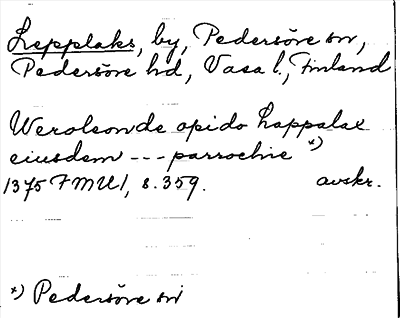 Lepplaks, by, Pedersöre sn,
Pedersöre hd, Vasa l., Finland
Werolson de opido Lappalax
eiusdem --- parrochie *)
1375 FMU 1, s. 359. avskr.
*) Pedersöre sn